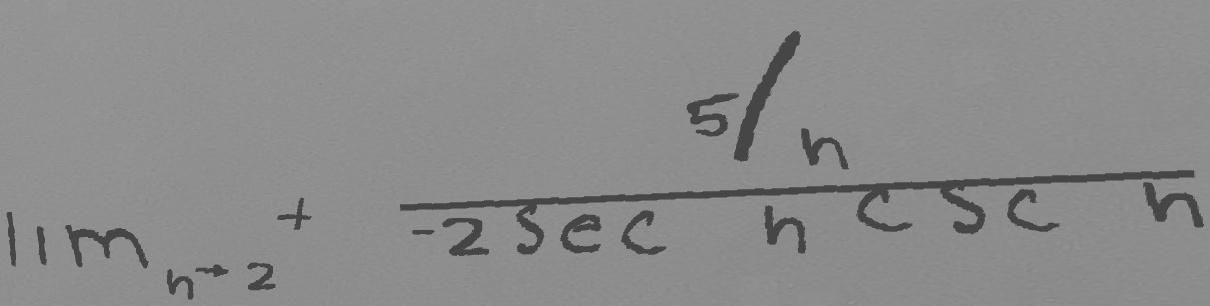 \lim_{n \to 2^+} \frac{5/n}{-2 \sec n \csc n}